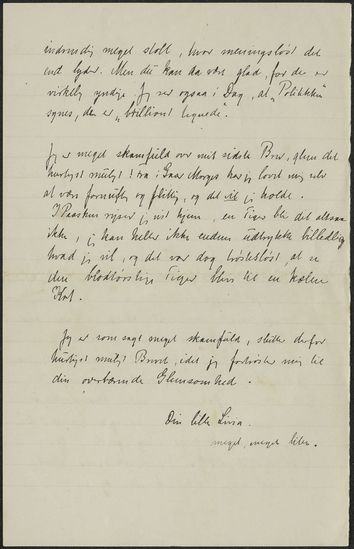 meget stolt, hvor meningsløst det
end lyder. Men du kan da vær glad, for de er
virkelig yndige. Jeg ser ogsaa i Dag, at "Politikken"
synes, den er "brilliant tegnede".
Jeg er meget skamfuld over mit sidste Brev, glem det
hurtigst muligt! i Gaar Morges har jeg lovet mig selv
at være fornuftig og flittig, og det vil jeg holde.
I Paasken rejser jeg hjem, en Tiger blir det altsaa
ikke, jeg kan heller ikke endnu udtrykke billedlig
hvad jeg vil, og det var dog trøstesløst, at
den blodtørstige Tiger blev til en
Kat.
Jeg er som sagt meget skamfuld, slutter derfor
hurtigst muligt Brevet, idet jeg fortrøster mig til
din overbærende Glemsomhed.
Din lille Lisa.
meget, meget lille.